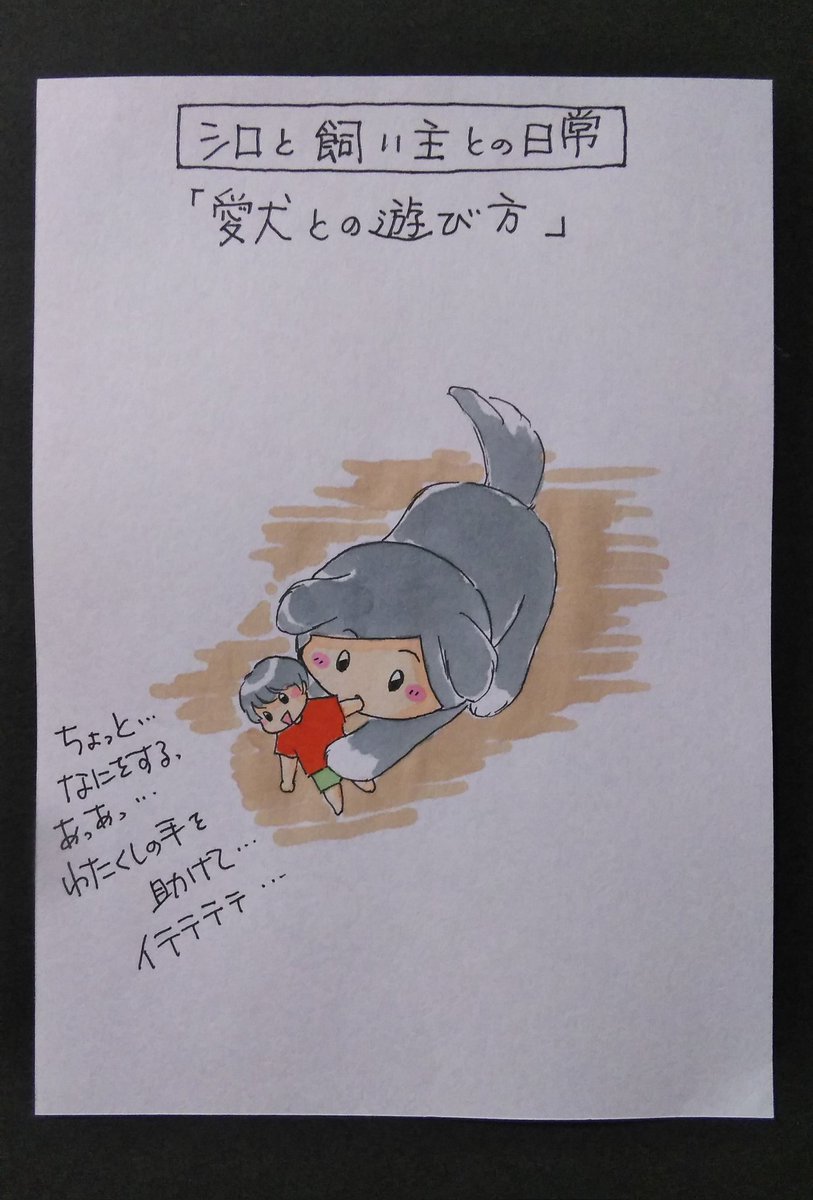 シロと飼い主との日常
「愛犬との遊び方」
ちょっと…
なにをする、
あっあっ…
わたくしの手を
助けて…
イテテテテ…